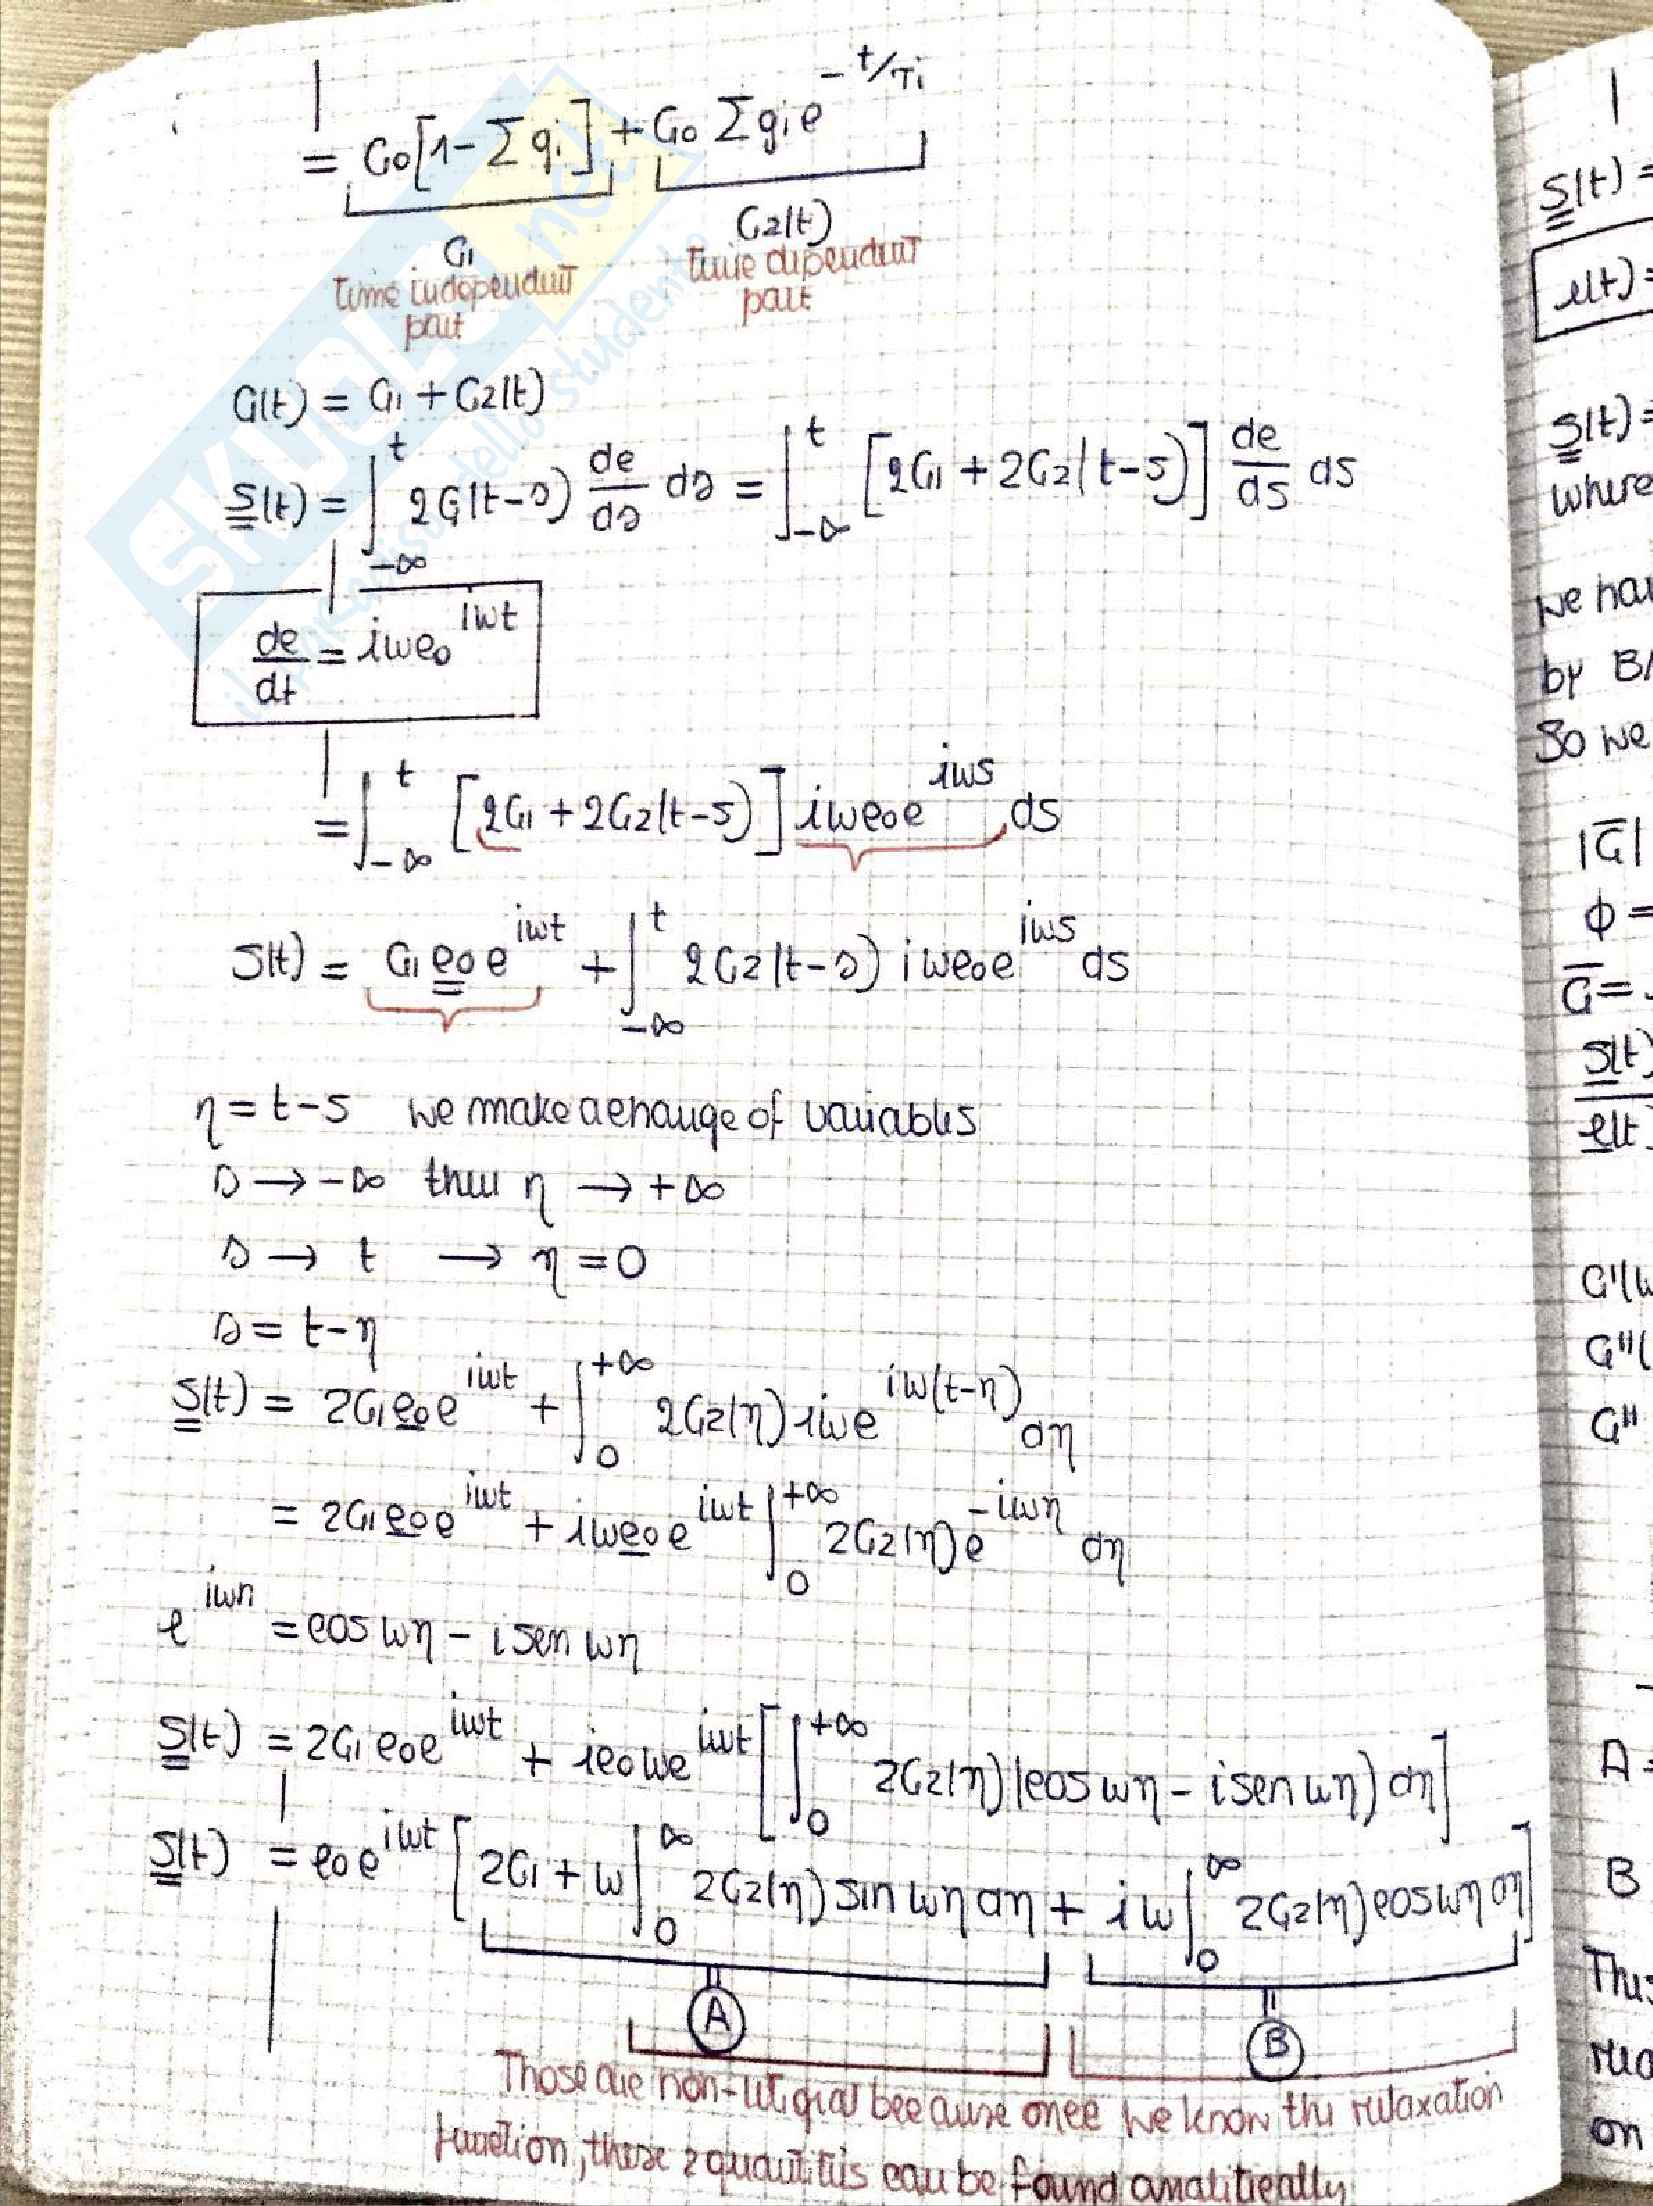 = G0[1 - Σ gi] + G0 Σ gi e^{-t/τi}
G1 G2(t)
Time independent time dipendent
part part
G(t) = G1 + G2(t)
S(t) = ∫_{-∞}^{t} 2G(t-s) de/ds ds = ∫_{-∞}^{t} [2G1 + 2G2(t-s)] de/ds ds
de/dt = iωe0^{iωt}
= ∫_{-∞}^{t} [2G1 + 2G2(t-s)] iωe0e^{iωs} ds
S(t) = G1 e0 e^{iωt} + ∫_{-∞}^{t} 2G2(t-s) iωe0e^{iωs} ds
η = t-s we make a change of variables
s → -∞ then η → +∞
s → t → η = 0
s = t-η
S(t) = 2G1e0e^{iωt} + ∫_{0}^{+∞} 2G2(η) iωe^{iω(t-η)} dη
= 2G1e0e^{iωt} + iωe0e^{iωt} ∫_{0}^{+∞} 2G2(η)e^{-iωη} dη
e^{iωη} = cos ωη - i sen ωη
S(t) = 2G1e0e^{iωt} + ie0ωe^{iωt} [∫_{0}^{+∞} 2G2(η)(cos ωη - i sen ωη) dη]
S(t) = e0e^{iωt} [2G1 + ω∫_{0}^{∞} 2G2(η) sin ωη dη + iω∫_{0}^{∞} 2G2(η) cos ωη dη]
A B
Those are non-itigral because once we know the relaxation
function, these 2 quantitis can be found analitically
S(t) =
S(t) =
where
by
So we
|G|
φ =
G =
S(t)
e(t)
G'(ω
G''(
G''
A =
B
on
SKUOLA.net